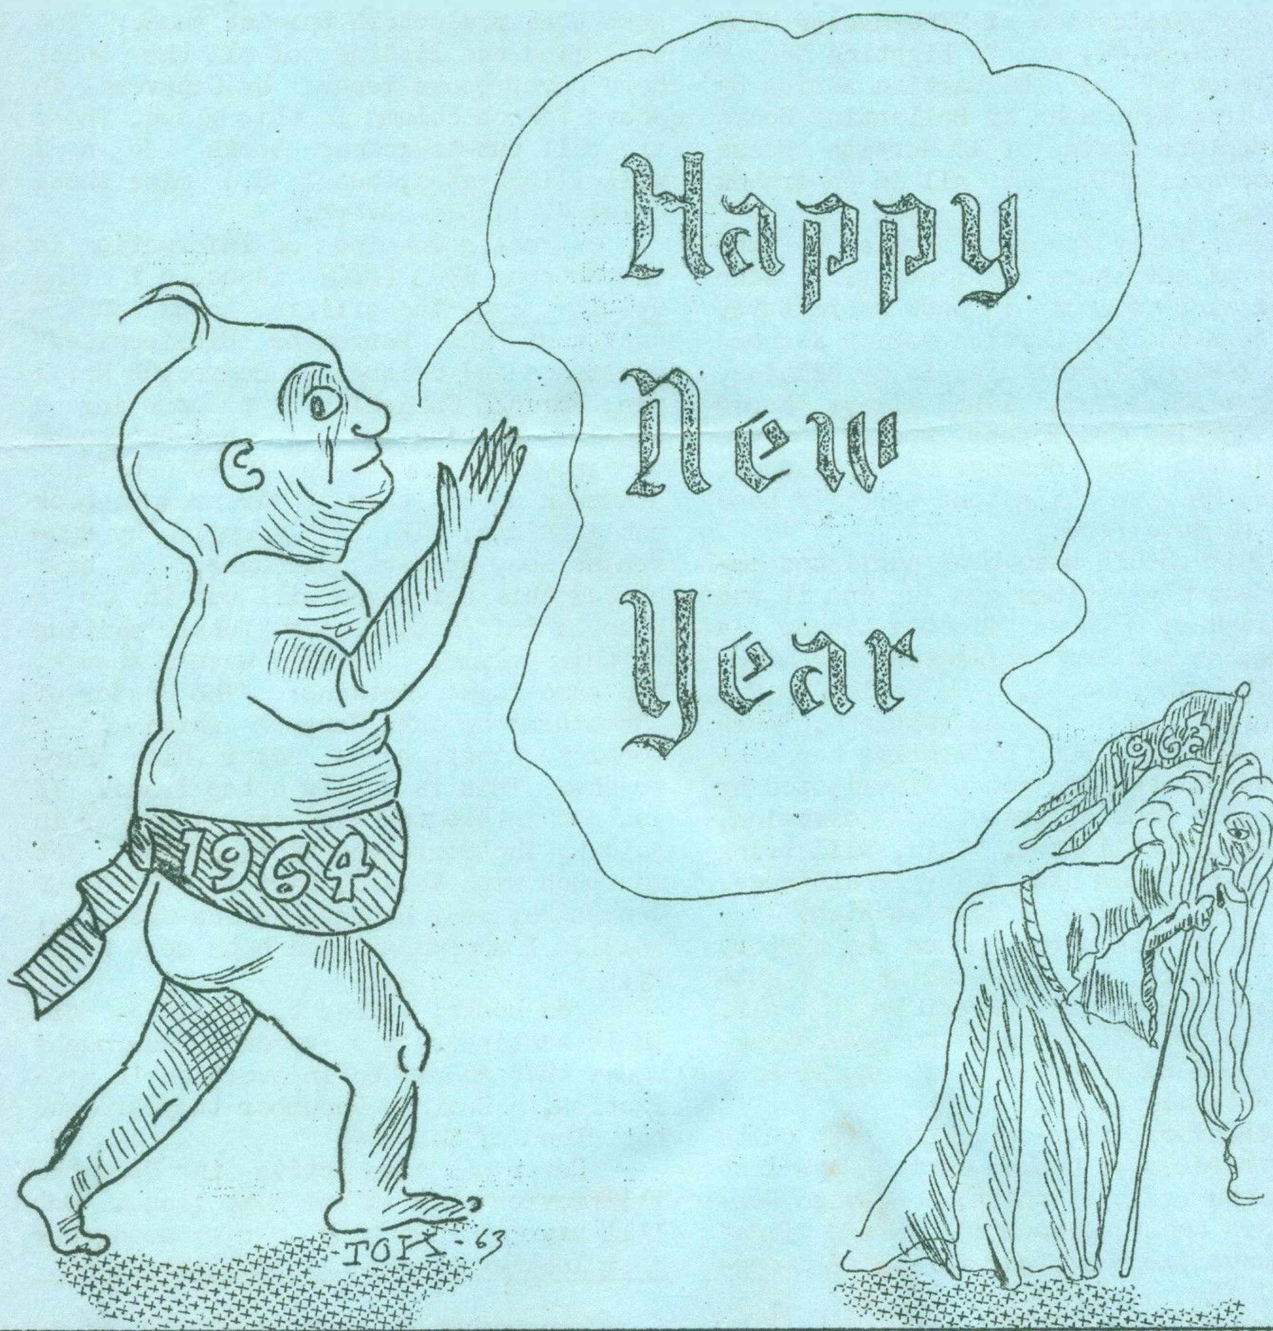 Happy
New
Year
1963
1964
TOK - 63